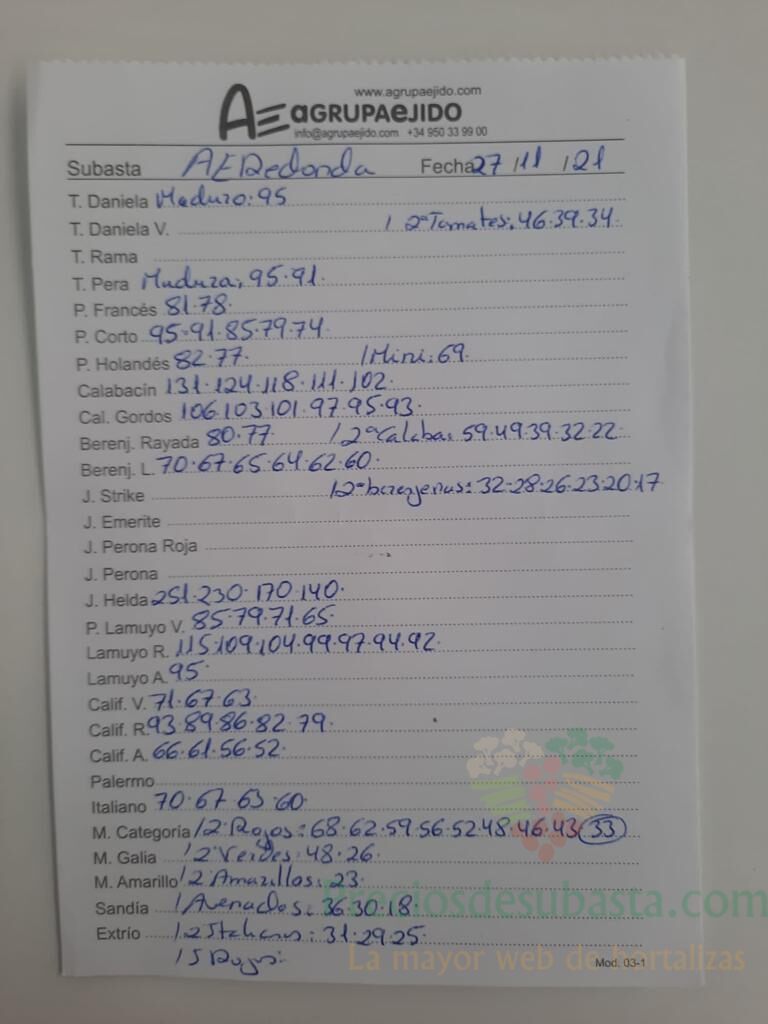 www.agrupaejido.com
AE AGRUPAEJIDO
info@agrupaejido.com +34 950 33 99 00
Subasta AERedonda Fecha 27/11/21
T. Daniela Maduro: 95
T. Daniela V. / 2ª Tomates: 46.39.34.
T. Rama
T. Pera Maduza: 95.91.
P. Francés 81.78.
P. Corto 95.91.85.79.74
P. Holandés 82.77. / Mini: 69.
Calabacín 131.124.118.111.102.
Cal. Gordos 106.103.101.97.95.93.
Berenj. Rayada 80.77 / 2ª Calaba: 59.49.39.32.22
Berenj. L. 70.67.65.64.62.60.
J. Strike / 2ª berenjenas: 32.28.26.23.20.17
J. Emerite
J. Perona Roja
J. Perona
J. Helda 251.230.170.140.
P. Lamuyo V. 85.79.71.65.
Lamuyo R. 115.109.104.99.97.94.92
Lamuyo A. 95.
Calif. V. 71.67.63.
Calif. R. 93.89.86.82.79.
Calif. A. 66.61.56.52.
Palermo
Italiano 70.67.63.60.
M. Categoría / 2ª Rojos: 68.62.59.56.52.48.46.43 (33)
M. Galia / 2ª Verdes: 48.26.
M. Amarillo / 2 Amarillos: 23.
Sandía / Asenados: 36.30.18.
Extrío / 2 Italianos: 31.29.25.
/ 5 Rojos:
Mod. 03-1
Preciosdesubasta.com
La mayor web de hortalizas